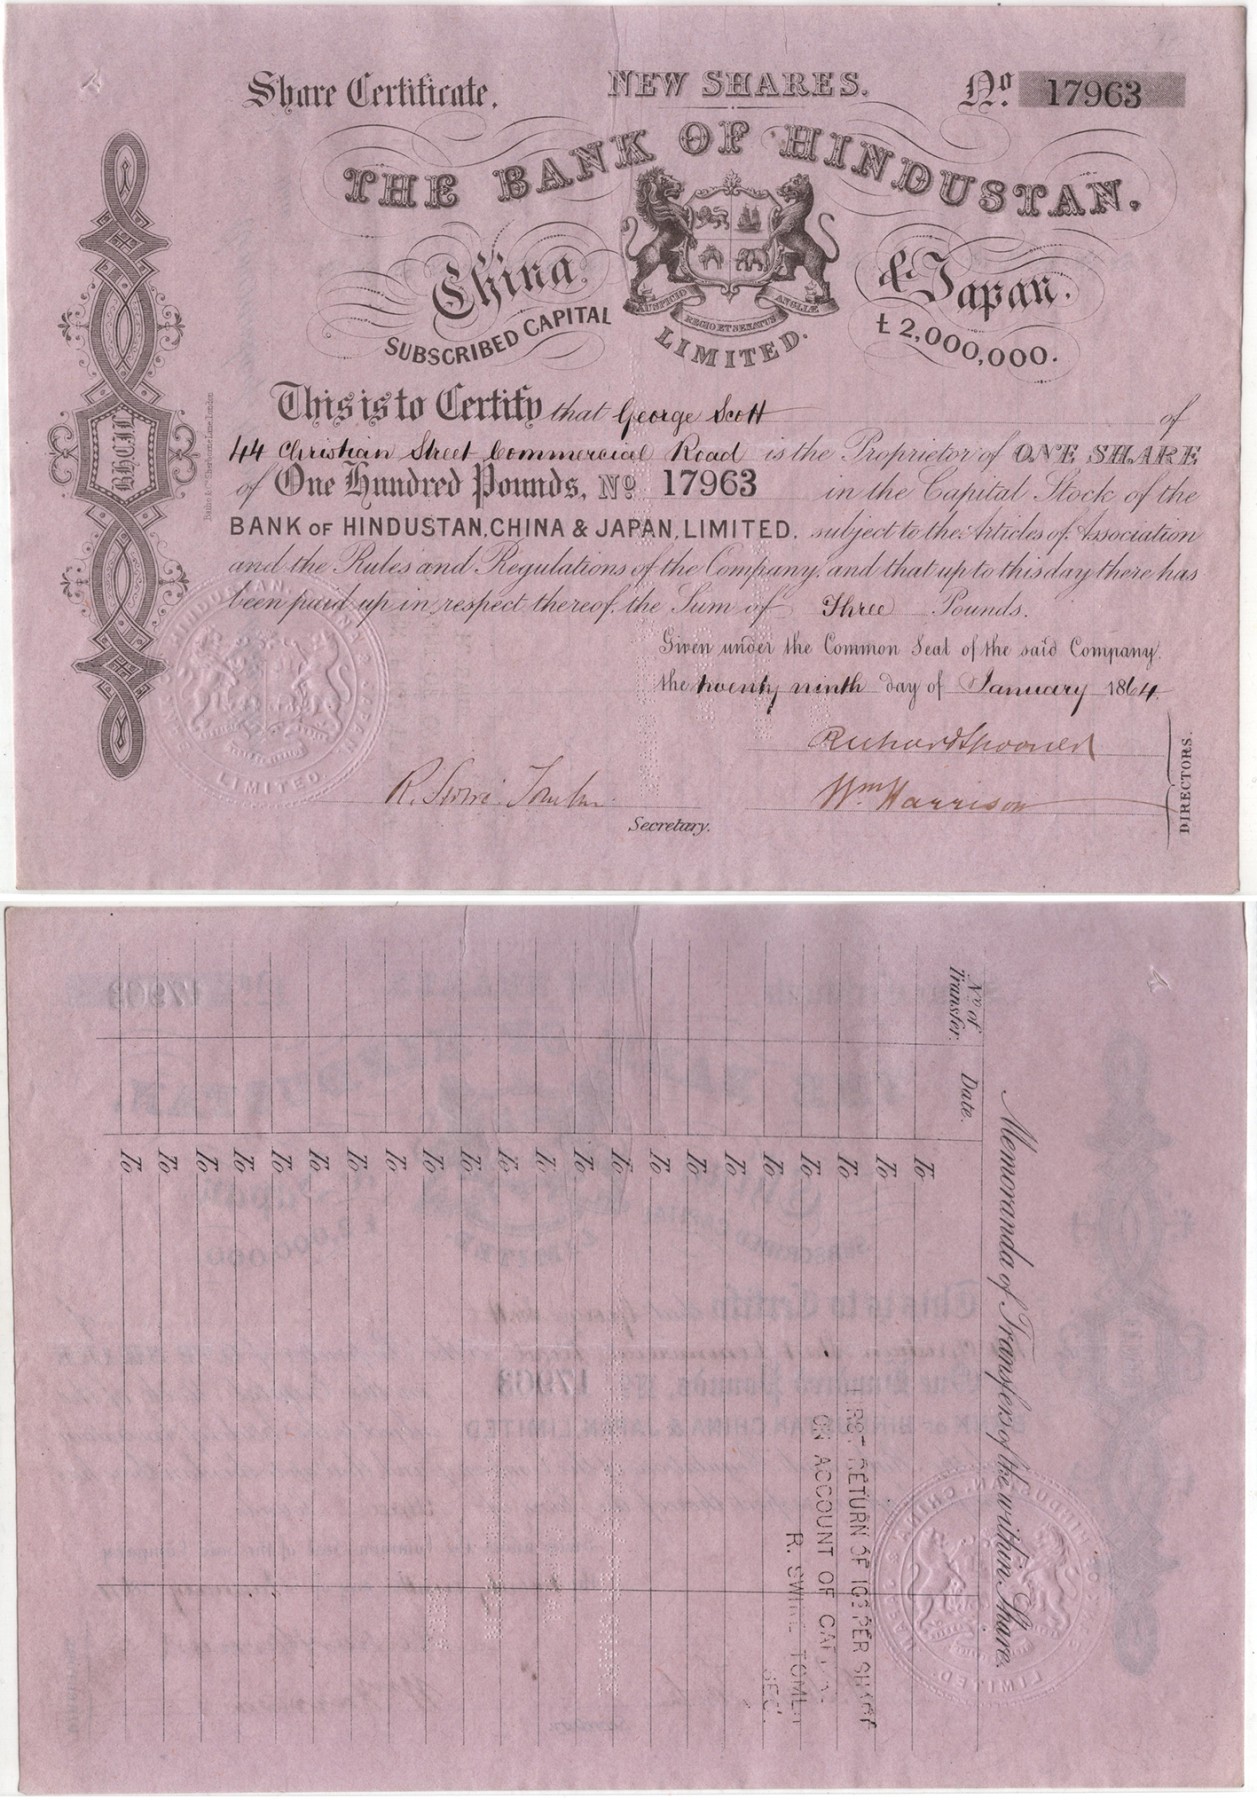 Share Certificate.
NEW SHARES.
No. 17963
THE BANK OF HINDUSTAN,
China & Japan.
AUSPICIO REGIO ET SENATUS ANGLIÆ
SUBSCRIBED CAPITAL £2,000,000.
LIMITED.
This is to Certify that George Scott of
44 Christian Street Commercial Road is the Proprietor of ONE SHARE
of One Hundred Pounds, No. 17963 in the Capital Stock of the
BANK OF HINDUSTAN, CHINA & JAPAN, LIMITED. subject to the Articles of Association
and the Rules and Regulations of the Company, and that up to this day there has
been paid up in respect thereof, the Sum of Three Pounds.
Given under the Common Seal of the said Company
the twenty ninth day of January 1864
Wm Harrison
DIRECTORS.
R. Secretary.
BHCJL
HINDUSTAN, CHINA & JAPAN, LIMITED.
No. of Transfer.
Date.
Memoranda of Transfers of the within Share.
To
To
To
To
To
To
To
To
To
To
To
To
To
To
To
To
To
To
To
To
To
To
FIRST RETURN OF PER SHARE
ON ACCOUNT OF CAPITAL
R.
SEC.
HINDUSTAN, CHINA & JAPAN LIMITED.